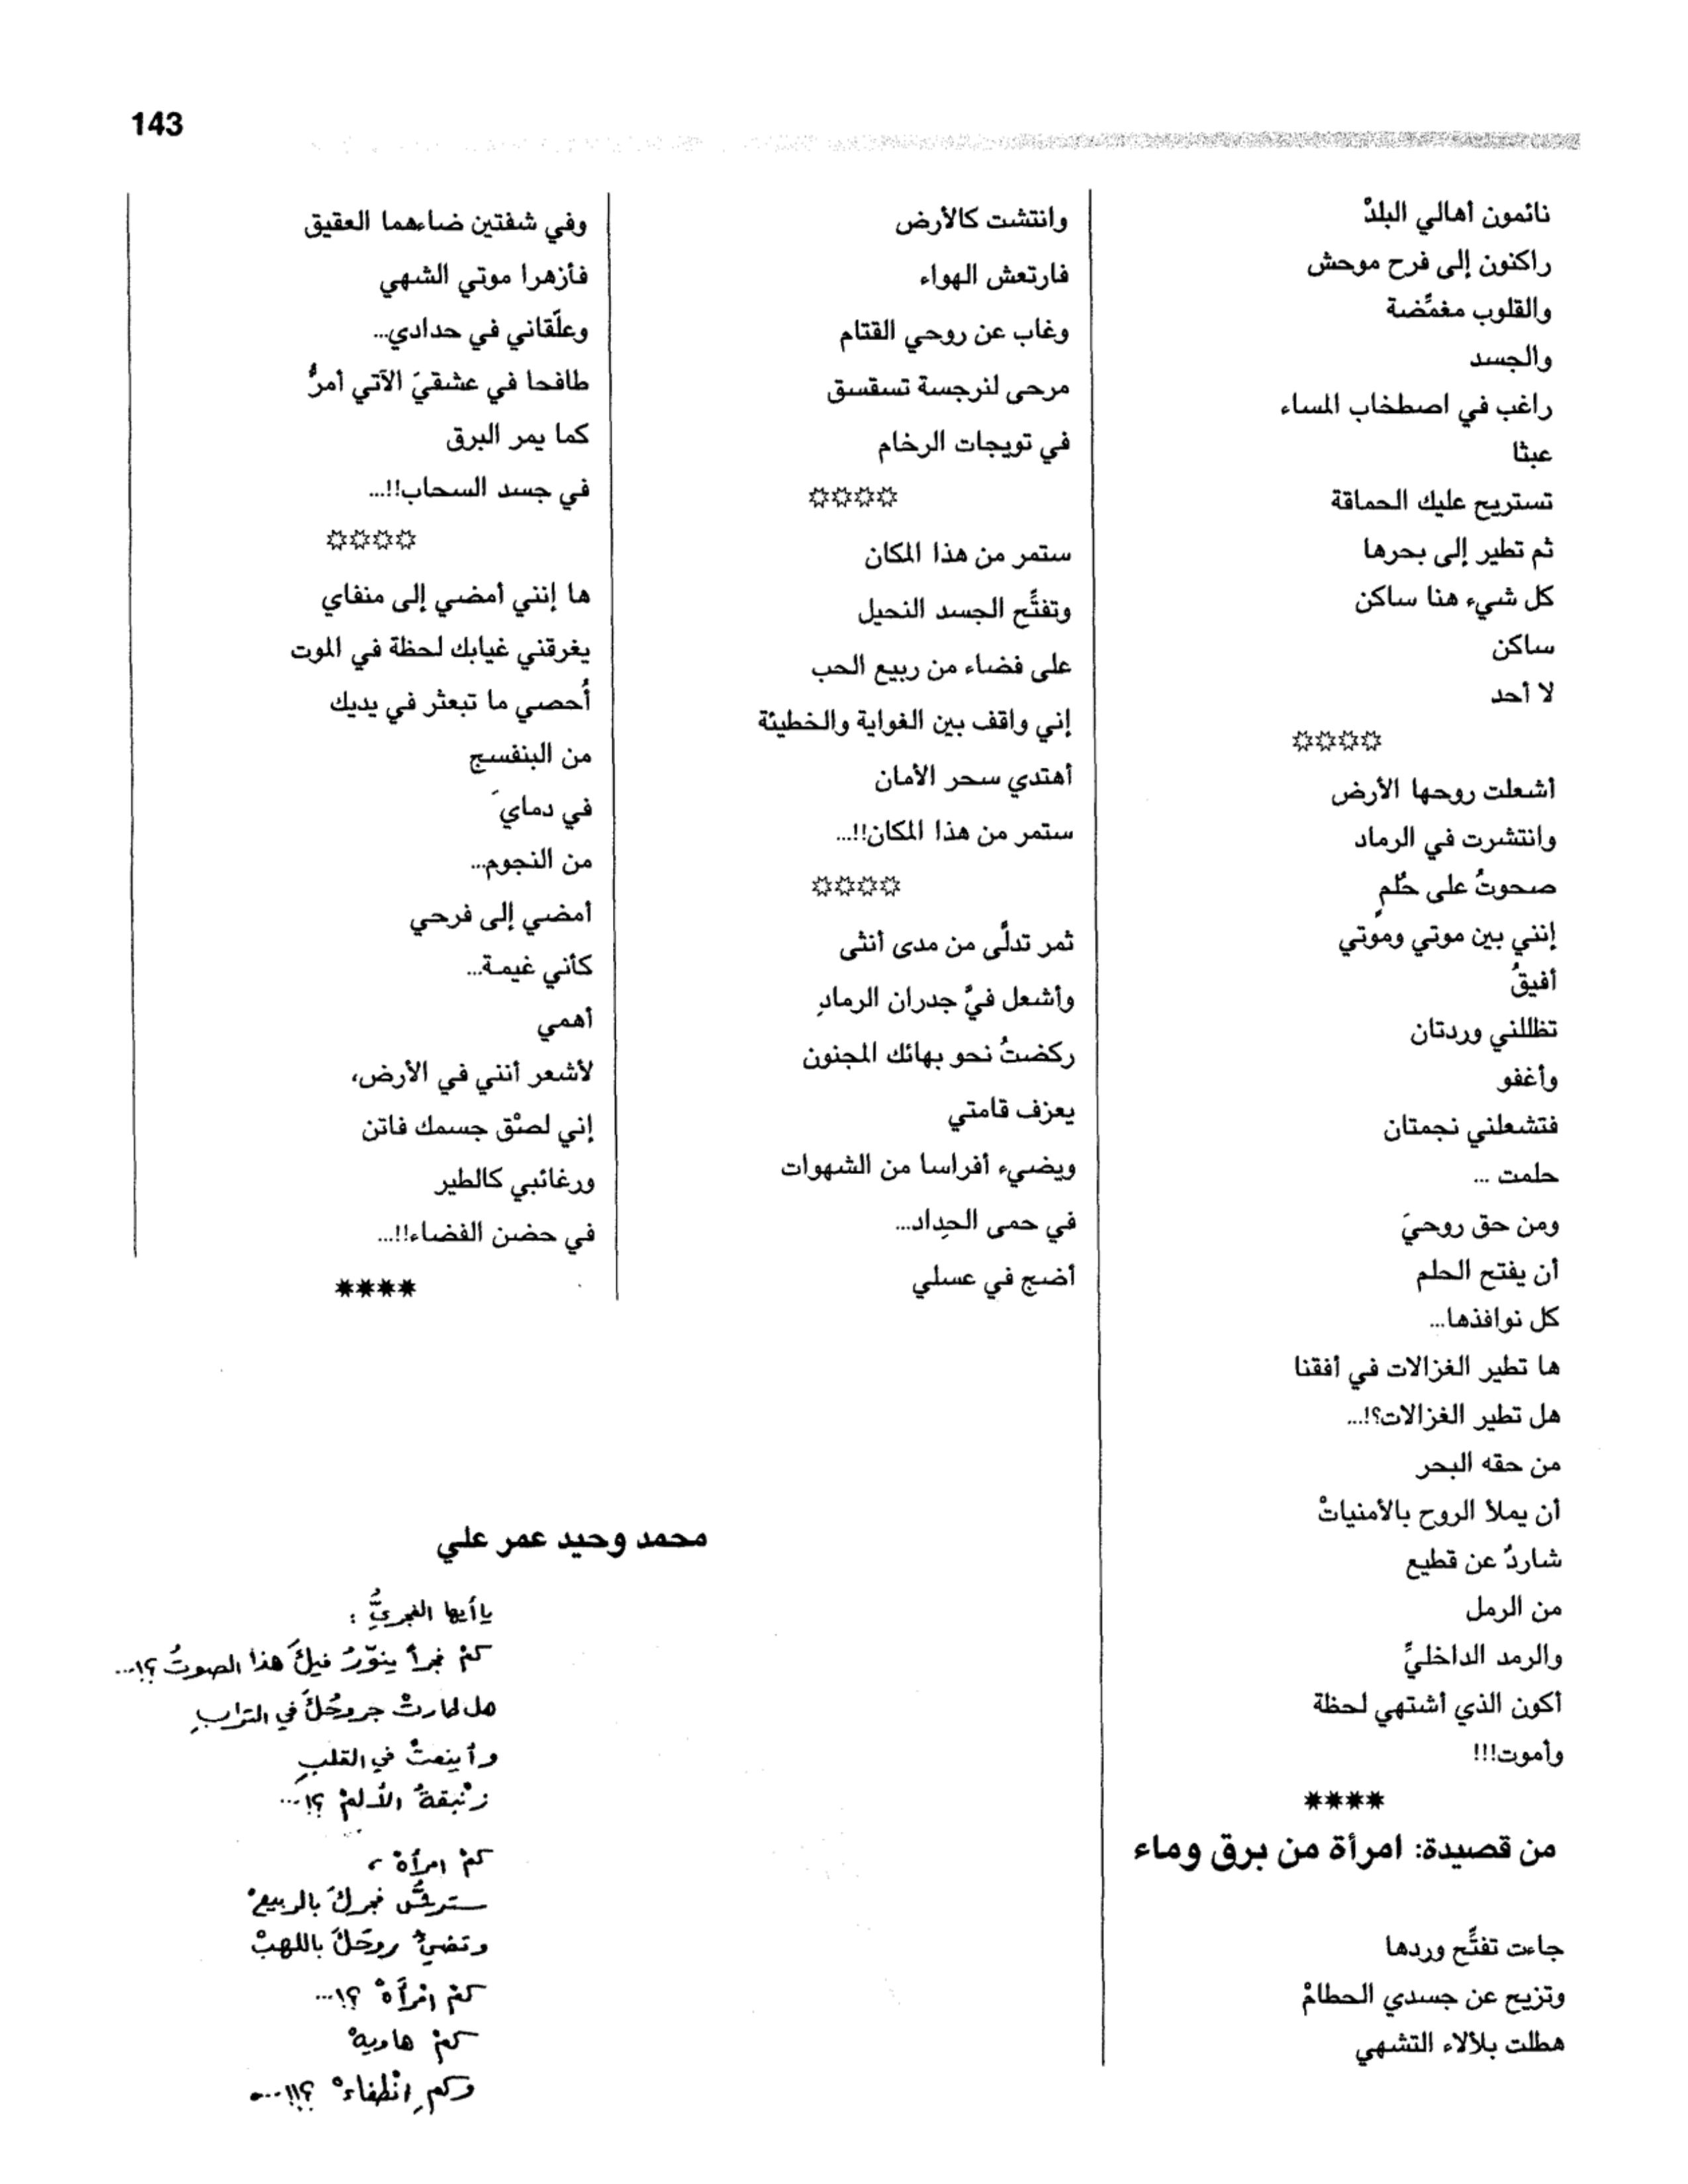 143
نائمون أهالي البلدْ
راكنون إلى فرح موحش
والقلوب مغمَّضة
والجسد
راغب في اصطخاب المساء
عبثا
تستريح عليك الحماقة
ثم تطير إلى بحرها
كل شيء هنا ساكن
ساكن
لا أحد
أشعلت روحها الأرض
وانتشرت في الرماد
صحوتُ على حُلمٍ
إنني بين موتي وموتي
أفيقُ
تظللني وردتان
وأغفو
فتشعلني نجمتان
حلمت ...
ومن حق روحيَ
أن يفتح الحلم
كل نوافذها...
ها تطير الغزالات في أفقنا
هل تطير الغزالات؟!...
من حقه البحر
أن يملأ الروح بالأمنياتْ
شاردٌ عن قطيع
من الرمل
والرمد الداخليِّ
أكون الذي أشتهي لحظة
وأموت!!!
****
من قصيدة: امرأة من برق وماء
جاءت تفتِّح وردها
وتزيح عن جسدي الحطامْ
هطلت بلألاء التشهي
وانتشت كالأرض
فارتعش الهواء
وغاب عن روحي القتام
مرحى لنرجسة تسقسق
في تويجات الرخام
ستمر من هذا المكان
وتفتِّح الجسد النحيل
على فضاء من ربيع الحب
إني واقف بين الغواية والخطيئة
أهتدي سحر الأمان
ستمر من هذا المكان!!...
ثمر تدلَّى من مدى أنثى
وأشعل فيَّ جدران الرمادِ
ركضتُ نحو بهائك المجنون
يعزف قامتي
ويضيء أفراسا من الشهوات
في حمى الحِداد...
أضج في عسلي
وفي شفتين ضاءهما العقيق
فأزهرا موتي الشهي
وعلّقاني في حدادي...
طافحا في عشقيَ الآتي أمرُّ
كما يمر البرق
في جسد السحاب!!...
ها إنني أمضي إلى منفاي
يغرقني غيابك لحظة في الموت
أُحصي ما تبعثر في يديك
من البنفسج
في دمايَ
من النجوم...
أمضي إلى فرحي
كأني غيمة...
أهمي
لأشعر أنني في الأرض،
إني لصْق جسمك فاتن
ورغائبي كالطير
في حضن الفضاء!!...
****
محمد وحيد عمر علي
ياأيها الغجريُّ :
كمْ فجراً ينوّرُ فيكَ هذا الصوتُ ؟!...
هل غارتْ جروحُكَ في الترابِ
وأينعتْ في القلبِ
زنْبقةُ الألمْ ؟!...
كمْ امرأةْ ،
ستر فجركَ بالربيعْ
وتضيءُ روحَكَ باللهبْ
كمْ امْرأةْ ؟!...
كمْ هاويةْ
وكمِ انْطفاءْ ؟!!...